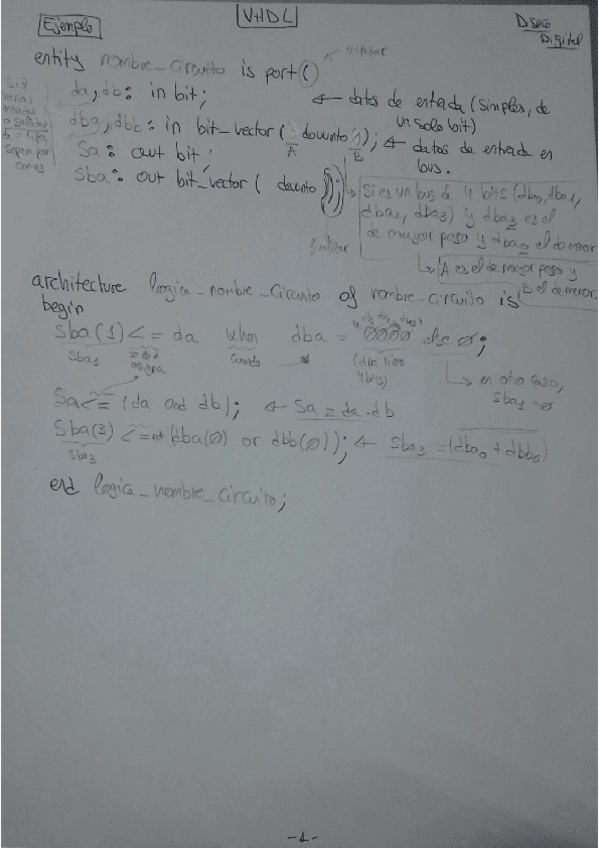 Ejemplo
VHDL
Diseño Digital
entity nombre_circuito is port (
da, db: in bit; ← datos de entrada (simples, de un solo bit)
dba, dbb: in bit_vector (3 downto 0); ← datos de entrada en bus.
A B
Sa: out bit;
Sba: out bit_vector ( downto ));
Si es un bus de 4 bits (dba0, dba1,
dba2, dba3) y dba3 es el
de mayor peso y dba0 el de menor
↳ A es el de mayor peso y
B el de menor.
architecture logica_nombre_circuito of nombre_circuito is
begin
Sba(1) <= da when dba = "0000" else 0;
Sba1 asigna cuando
4 bits)
↳ en otro caso,
Sba1 = 0
Sa <= (da and db); ← Sa = da.db
Sba(3) <= not (dba(0) or dbb(0)); ← Sba3 = (dba0 + dbb0)
Sba3
end logica_nombre_circuito;
-1-